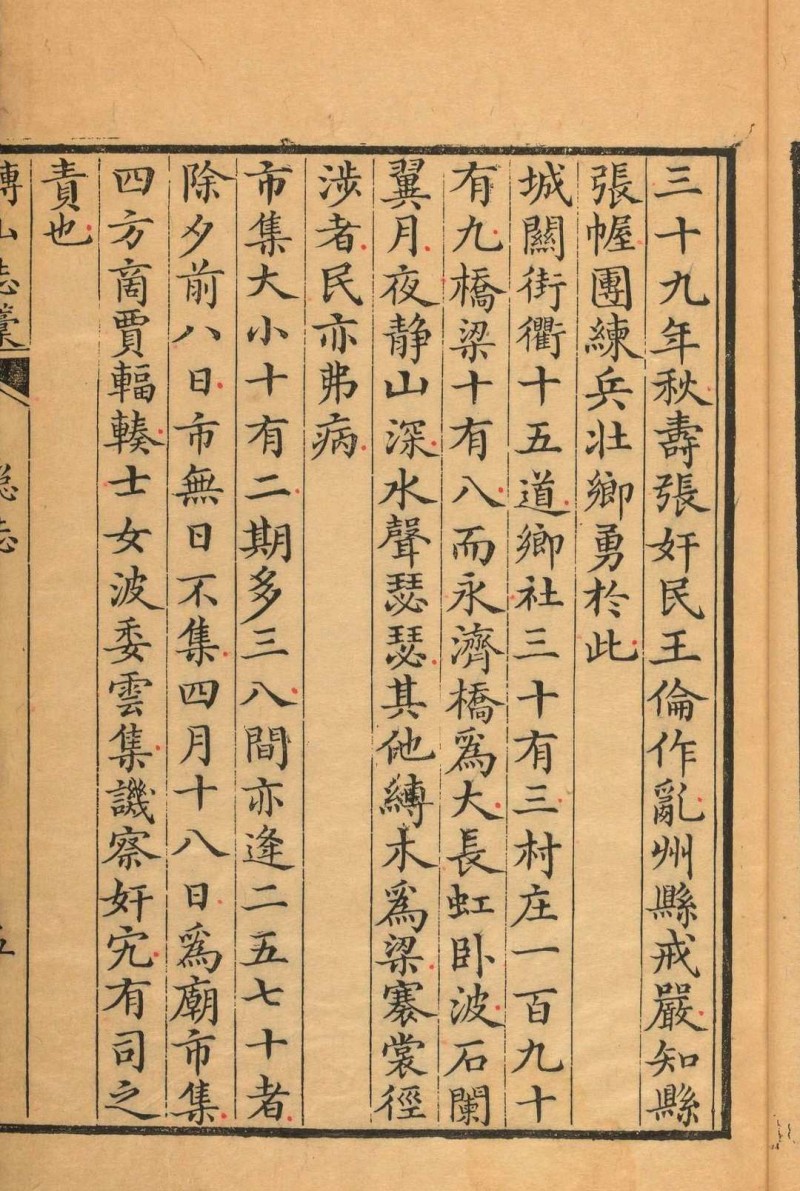 三十九年秋壽張奸民王倫作亂州縣戒嚴知縣
張幄團練兵壯鄉勇於此
城關街衢十五道鄉社三十有三村庄一百九十
有九橋梁十有八而永濟橋爲大長虹卧波石闌
翼月夜静山深水聲瑟瑟其他縛木爲梁褰裳徑
涉者民亦弗病
市集大小十有二期多三八間亦逢二五七十者
除夕前八日市無日不集四月十八日爲廟市集
四方商賈輻輳士女波委雲集譏察奸宄有司之
責也
博山志稾
五